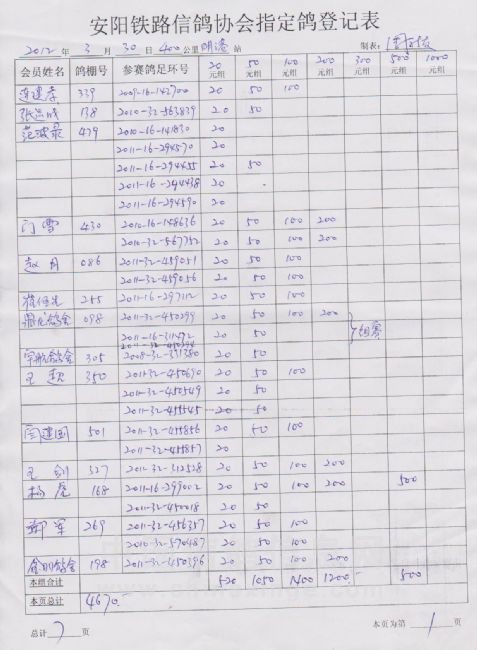 安阳铁路信鸽协会指定鸽登记表
2012 年 3 月 30 日 400 公里 明港 站 制表:
会员姓名 鸽棚号 参赛鸽足环号 20元组 50元组 100元组 200元组 300元组 500元组 1000元组
连建孝 339 2009-16-142700 20 50 100
138 2010-32-563839 20 50
范波最 479 2010-16-141830 20
2011-16-294570 20
2011-16-294455 20 50
2011-16-294438 20
2011-16-294590 20
门雪 430 2010-16-148636 20 50 100 200
2010-32-567752 20 50 100 200
赵月 086 2011-32-459051 20 50 100
2011-32-459056 20 50 100
255 2011-16-297112 20 50 100
鸽舍 098 2011-32-450299 20 50 100 200
2011-16-311492 20 50
宇航鸽舍 305 2008-32-331380 20 50
王超 350 2011-32-450690 20 50 100
2011-32-450549 20 50
2011-32-455545 20 50
闫建国 501 2011-32-455856 20 50 100
2011-32-455857 20
王剑 327 2011-32-312528 20 50 100 200
杨虎 168 2011-16-299002 20 50 100 200 500
2011-32-450018 20 50
郭军 269 2011-32-456357 20 50 100
2010-32-570487 20 50 100
金刚鸽舍 198 2011-32-450396 20 50 100 200
本组合计 520 1050 1400 1200 500
本页总计 4670
总计 7 页 本页为第 1 页